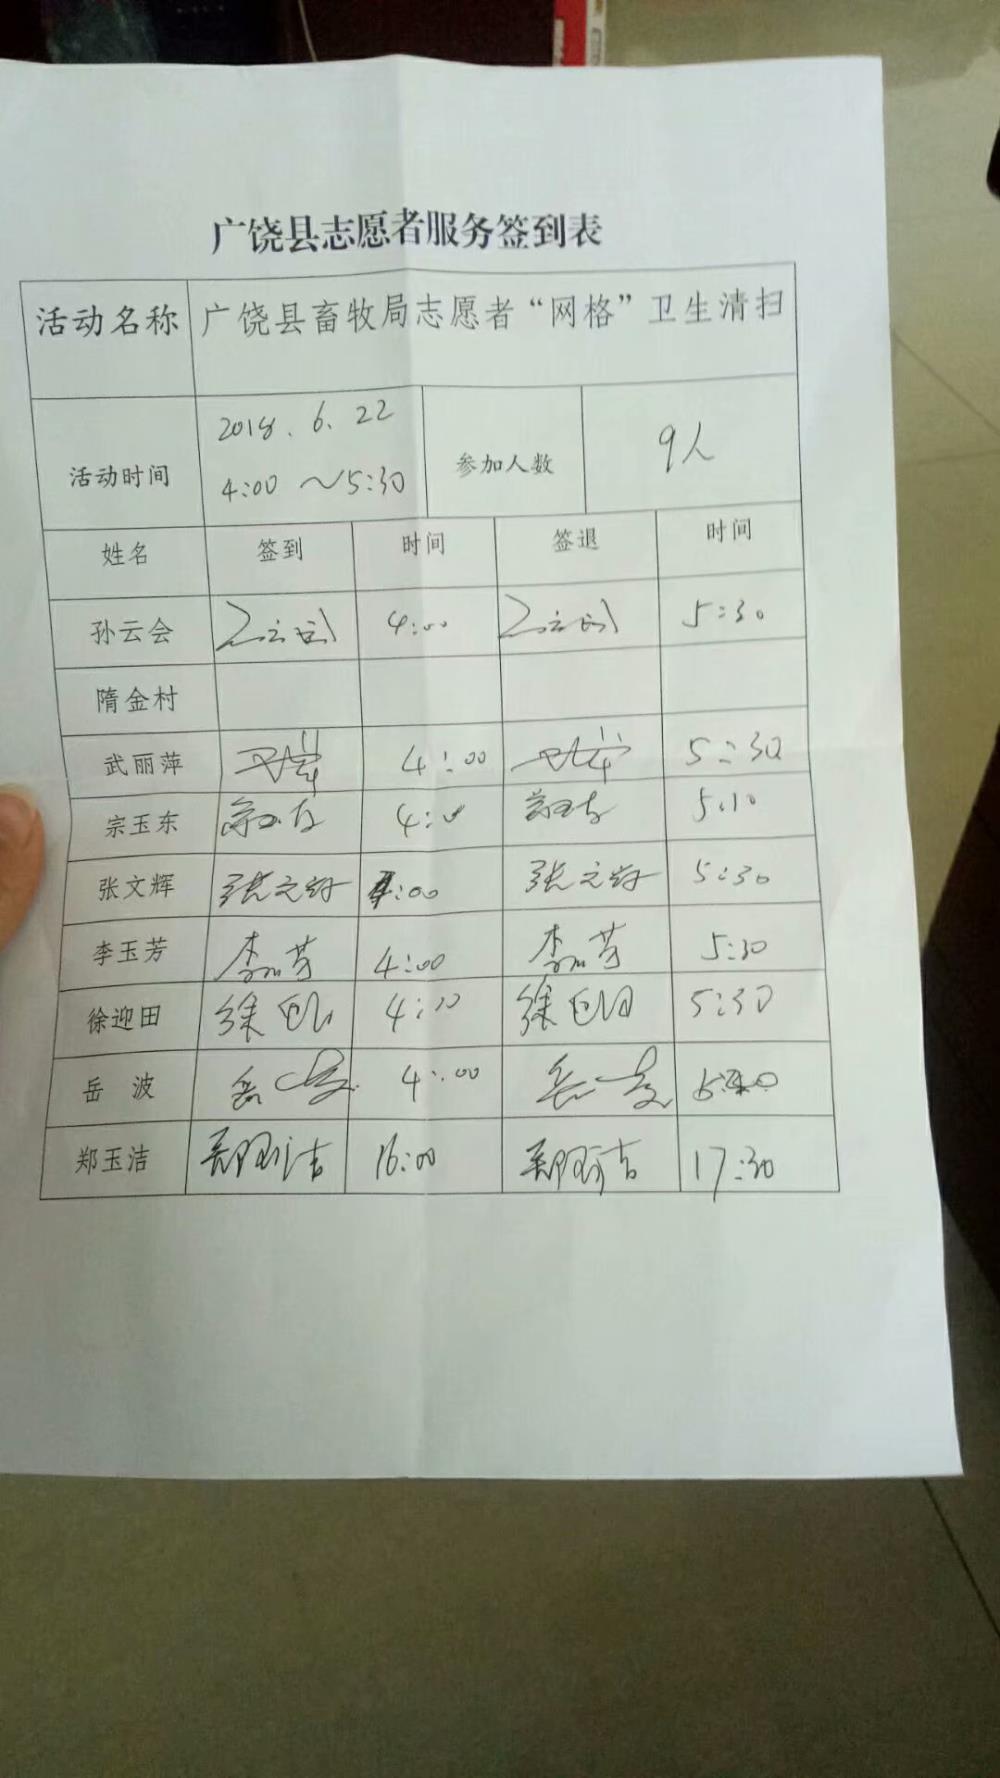 广饶县志愿者服务签到表
活动名称 广饶县畜牧局志愿者“网格”卫生清扫
活动时间 2018.6.22 4:00～5:30 参加人数 9人
姓名 签到 时间 签退 时间
孙云会 4:00 5:30
隋金村
武丽萍 4:00 5:30
宗玉东 4:00 5:10
张文辉 张文辉 4:00 张文辉 5:30
李玉芳 李玉芳 4:00 李玉芳 5:30
徐迎田 徐迎田 4:00 徐迎田 5:30
岳 波 岳波 4:00 岳波
郑玉洁 郑玉洁 16:00 郑玉洁 17:30